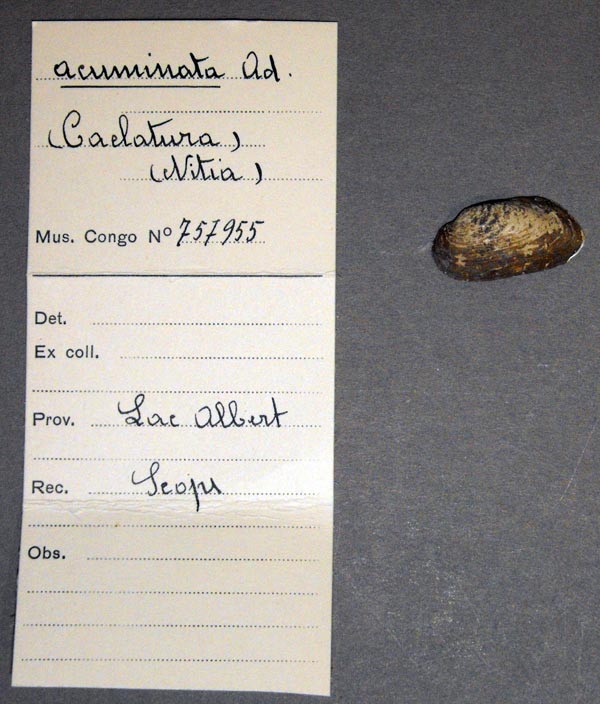 acuminata Ad.
(Caelatura)
(Nitia)
Mus. Congo Nº 757955
Det.
Ex coll.
Prov. Lac Albert
Rec.
Obs.